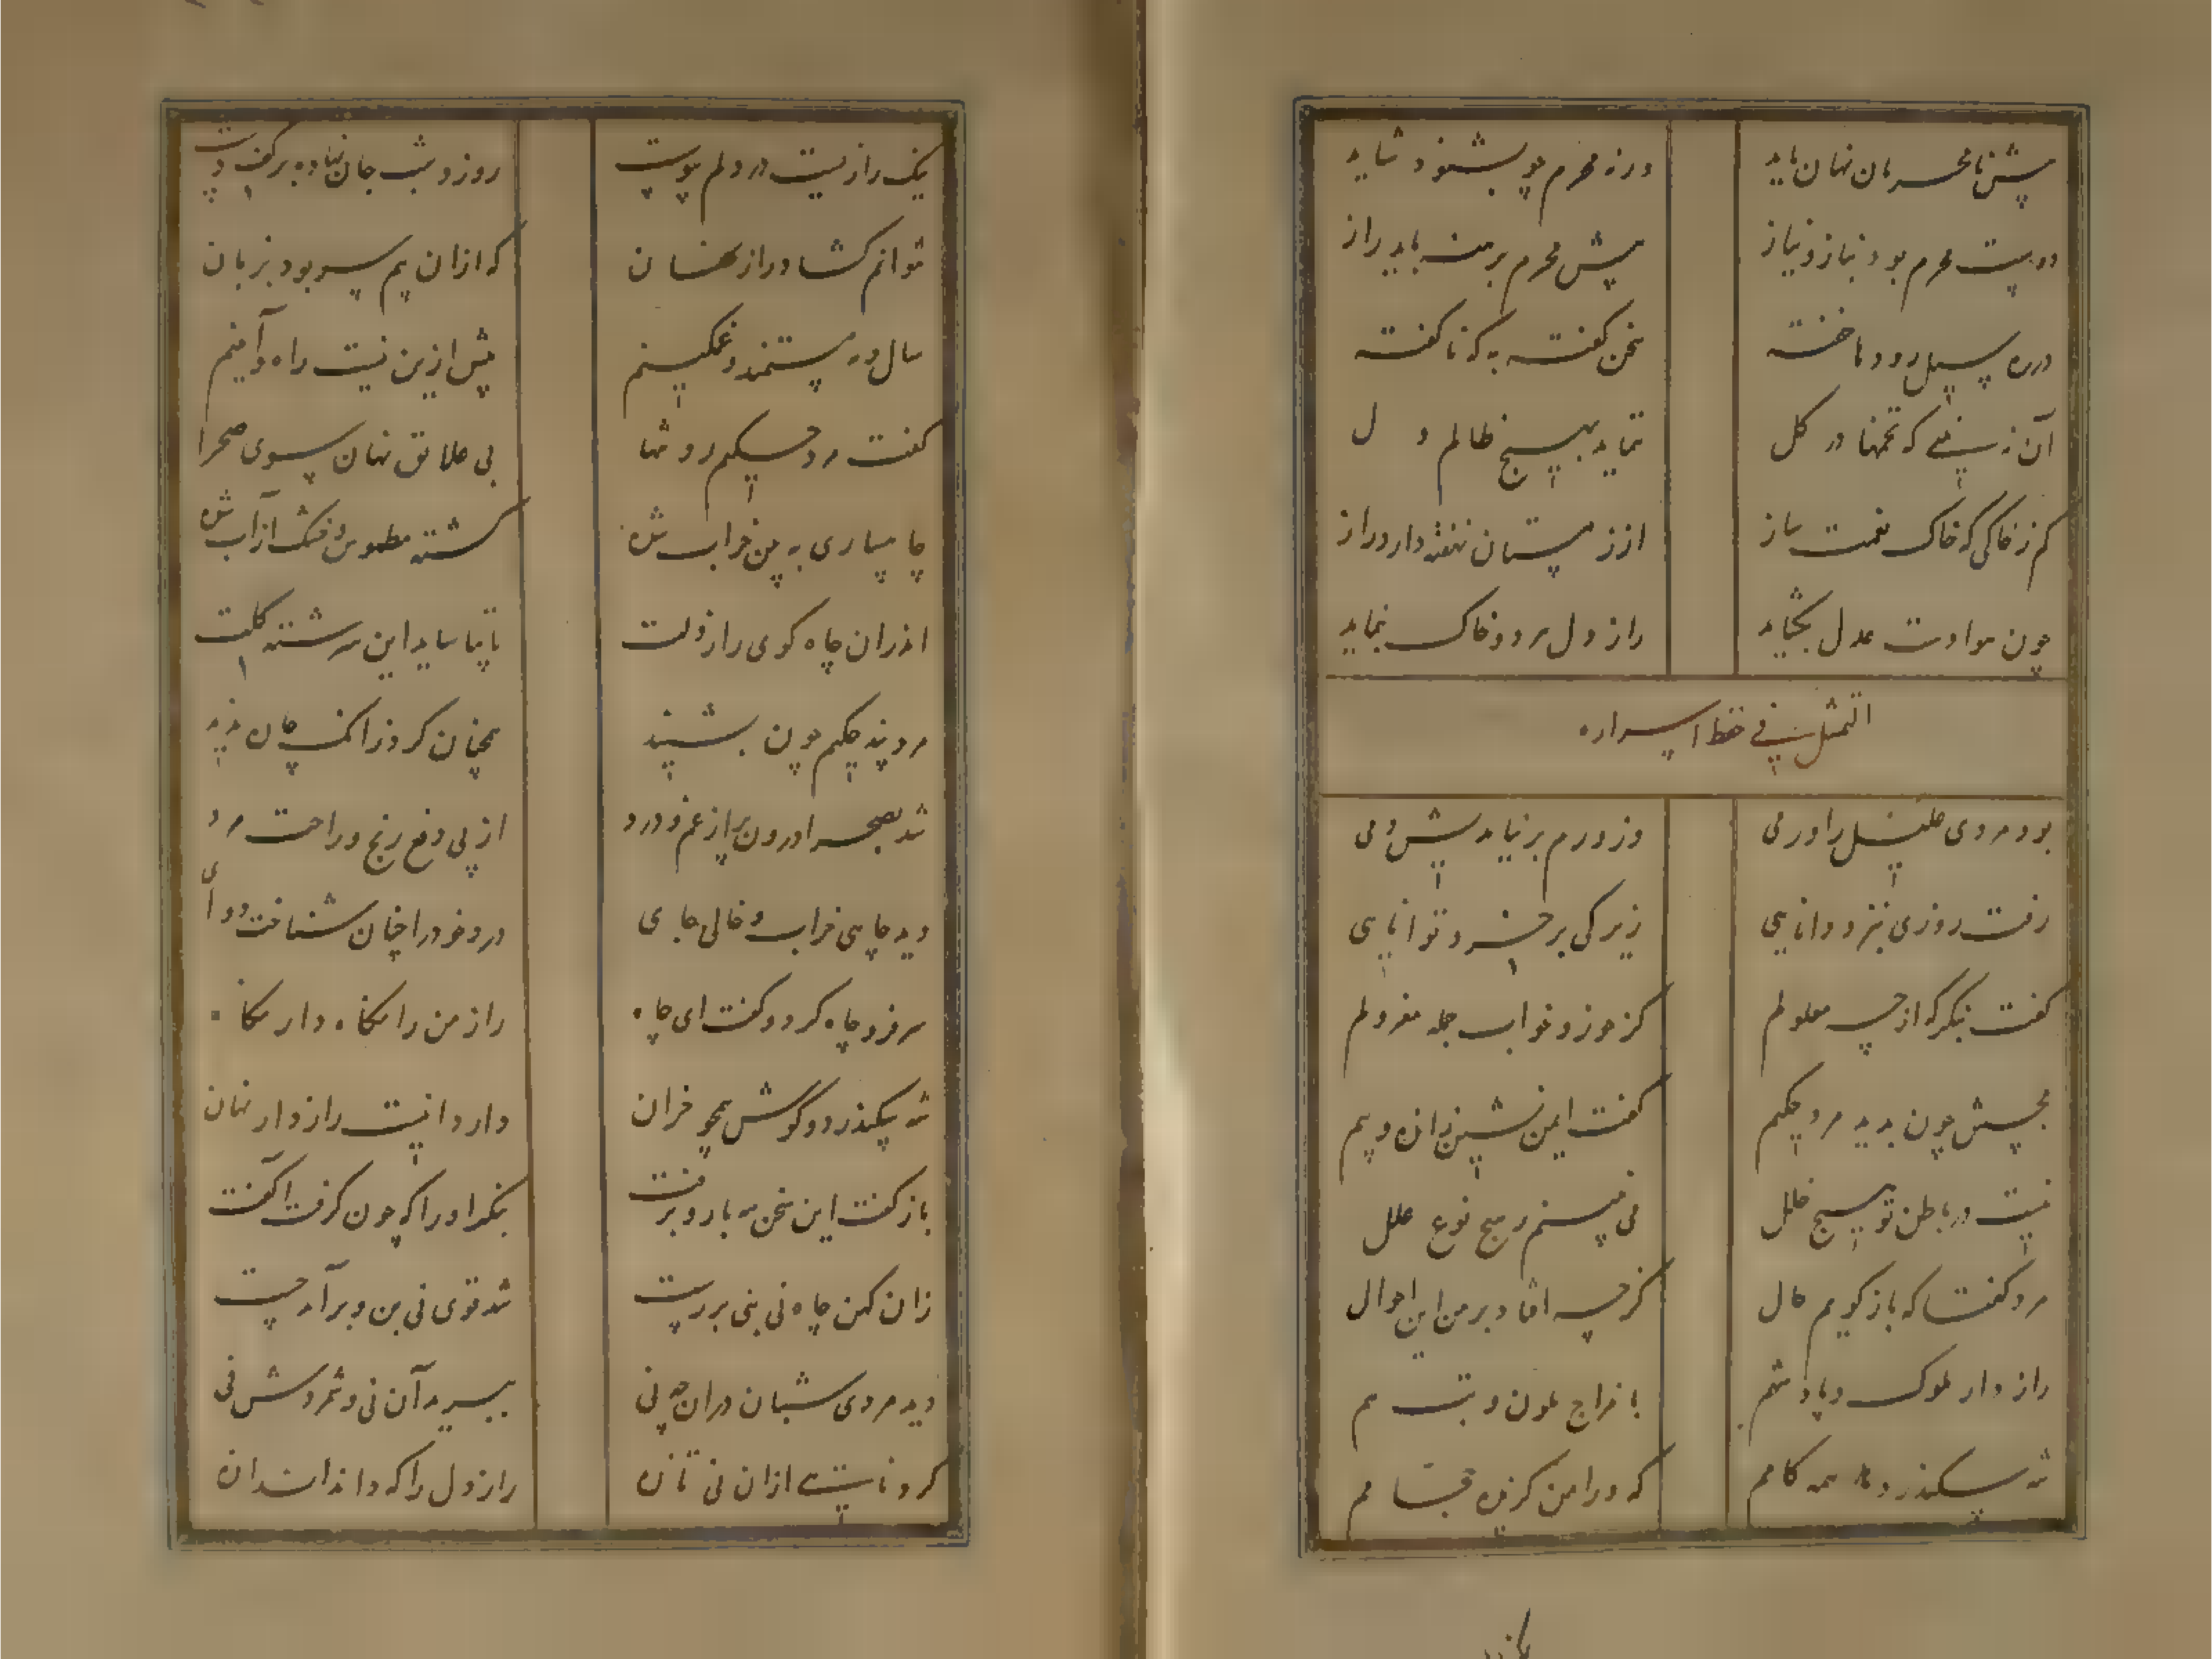 پیش نامحرمان نهان باید ورنه محرم چو بشنود شاید
دوست محرم بود بناز و نیاز پیش محرم برهنه باید راز
در ره سیل رود ناخفته سخن گفته به که ناگفته
آن زمینی که تخمها در گل ننماید بهیچ ظالم دل
کم ز خاکی که خاک نعمت ساز از زمستان نهفته دارد راز
چون هوا دست عدل بگشاید راز دل مرد و خاک بنماید
التمثیل فی حفظ اسراره
بود مردی علیل را ورمی وز ورم بر نیامدیش دمی
رفت روزی بنزد دانایی زیرکی پر خرد توانایی
گفت بنگر که از چه معلولم کز خور و خواب جمله معزولم
مجسش چون بدید مرد حکیم گفت ایمن نشین ز انده و بیم
نیست در باطن تو هیچ خلل می نبینم و هیچ نوع علل
مرد گفتا که باز گویم حال کز چه افتاد بر من این احوال
راز دار ملوک و پادشهم با مزاج ملون و تبهم
شه سکندر دهد همه کامم که ورا من گزیده حجامم
یک رازیست در دلم پیوست روز و شب جان نهاده بر کف دست
نتوانم گشاد راز نهان که ازان بیم سر بود بزبان
سال و مه مستمند و غمگینم بیش ازین نیست راه و آیینم
گفت مرد حکیم رو تنها بی علایق نهان سوی صحرا
چاهساری به بین خراب شده گشته مطموس و خشک از آب شده
اندران چاه گوی راز دلت تا بیاساید این سرشته گلت
مرد پند حکیم چون بشنید همچنان کرد از انک چاره ندید
شد بصحرا درون پر از غم و درد از پی دفع رنج و راحت مرد
دید چاهی خراب و خالی جای درد خود را چنان شناخت دوای
سر فرو چاه کرد و گفت ای چاه راز من را نگاه دار نگاه
شه سکندر دو گوش همچو خران دارد اینست راز دار نهان
باز گفت این سخن سه بار و برفت بنگر او را که چون گرفت آگفت
زان کهن چاه نی بنی بر رست شد قوی نی بن و بر آمد چست
دید مردی شبان دران چه نی ببرید آن نی و شمردش فی
کرد نایی ازان نی تازه راز دل را که داند اندازه